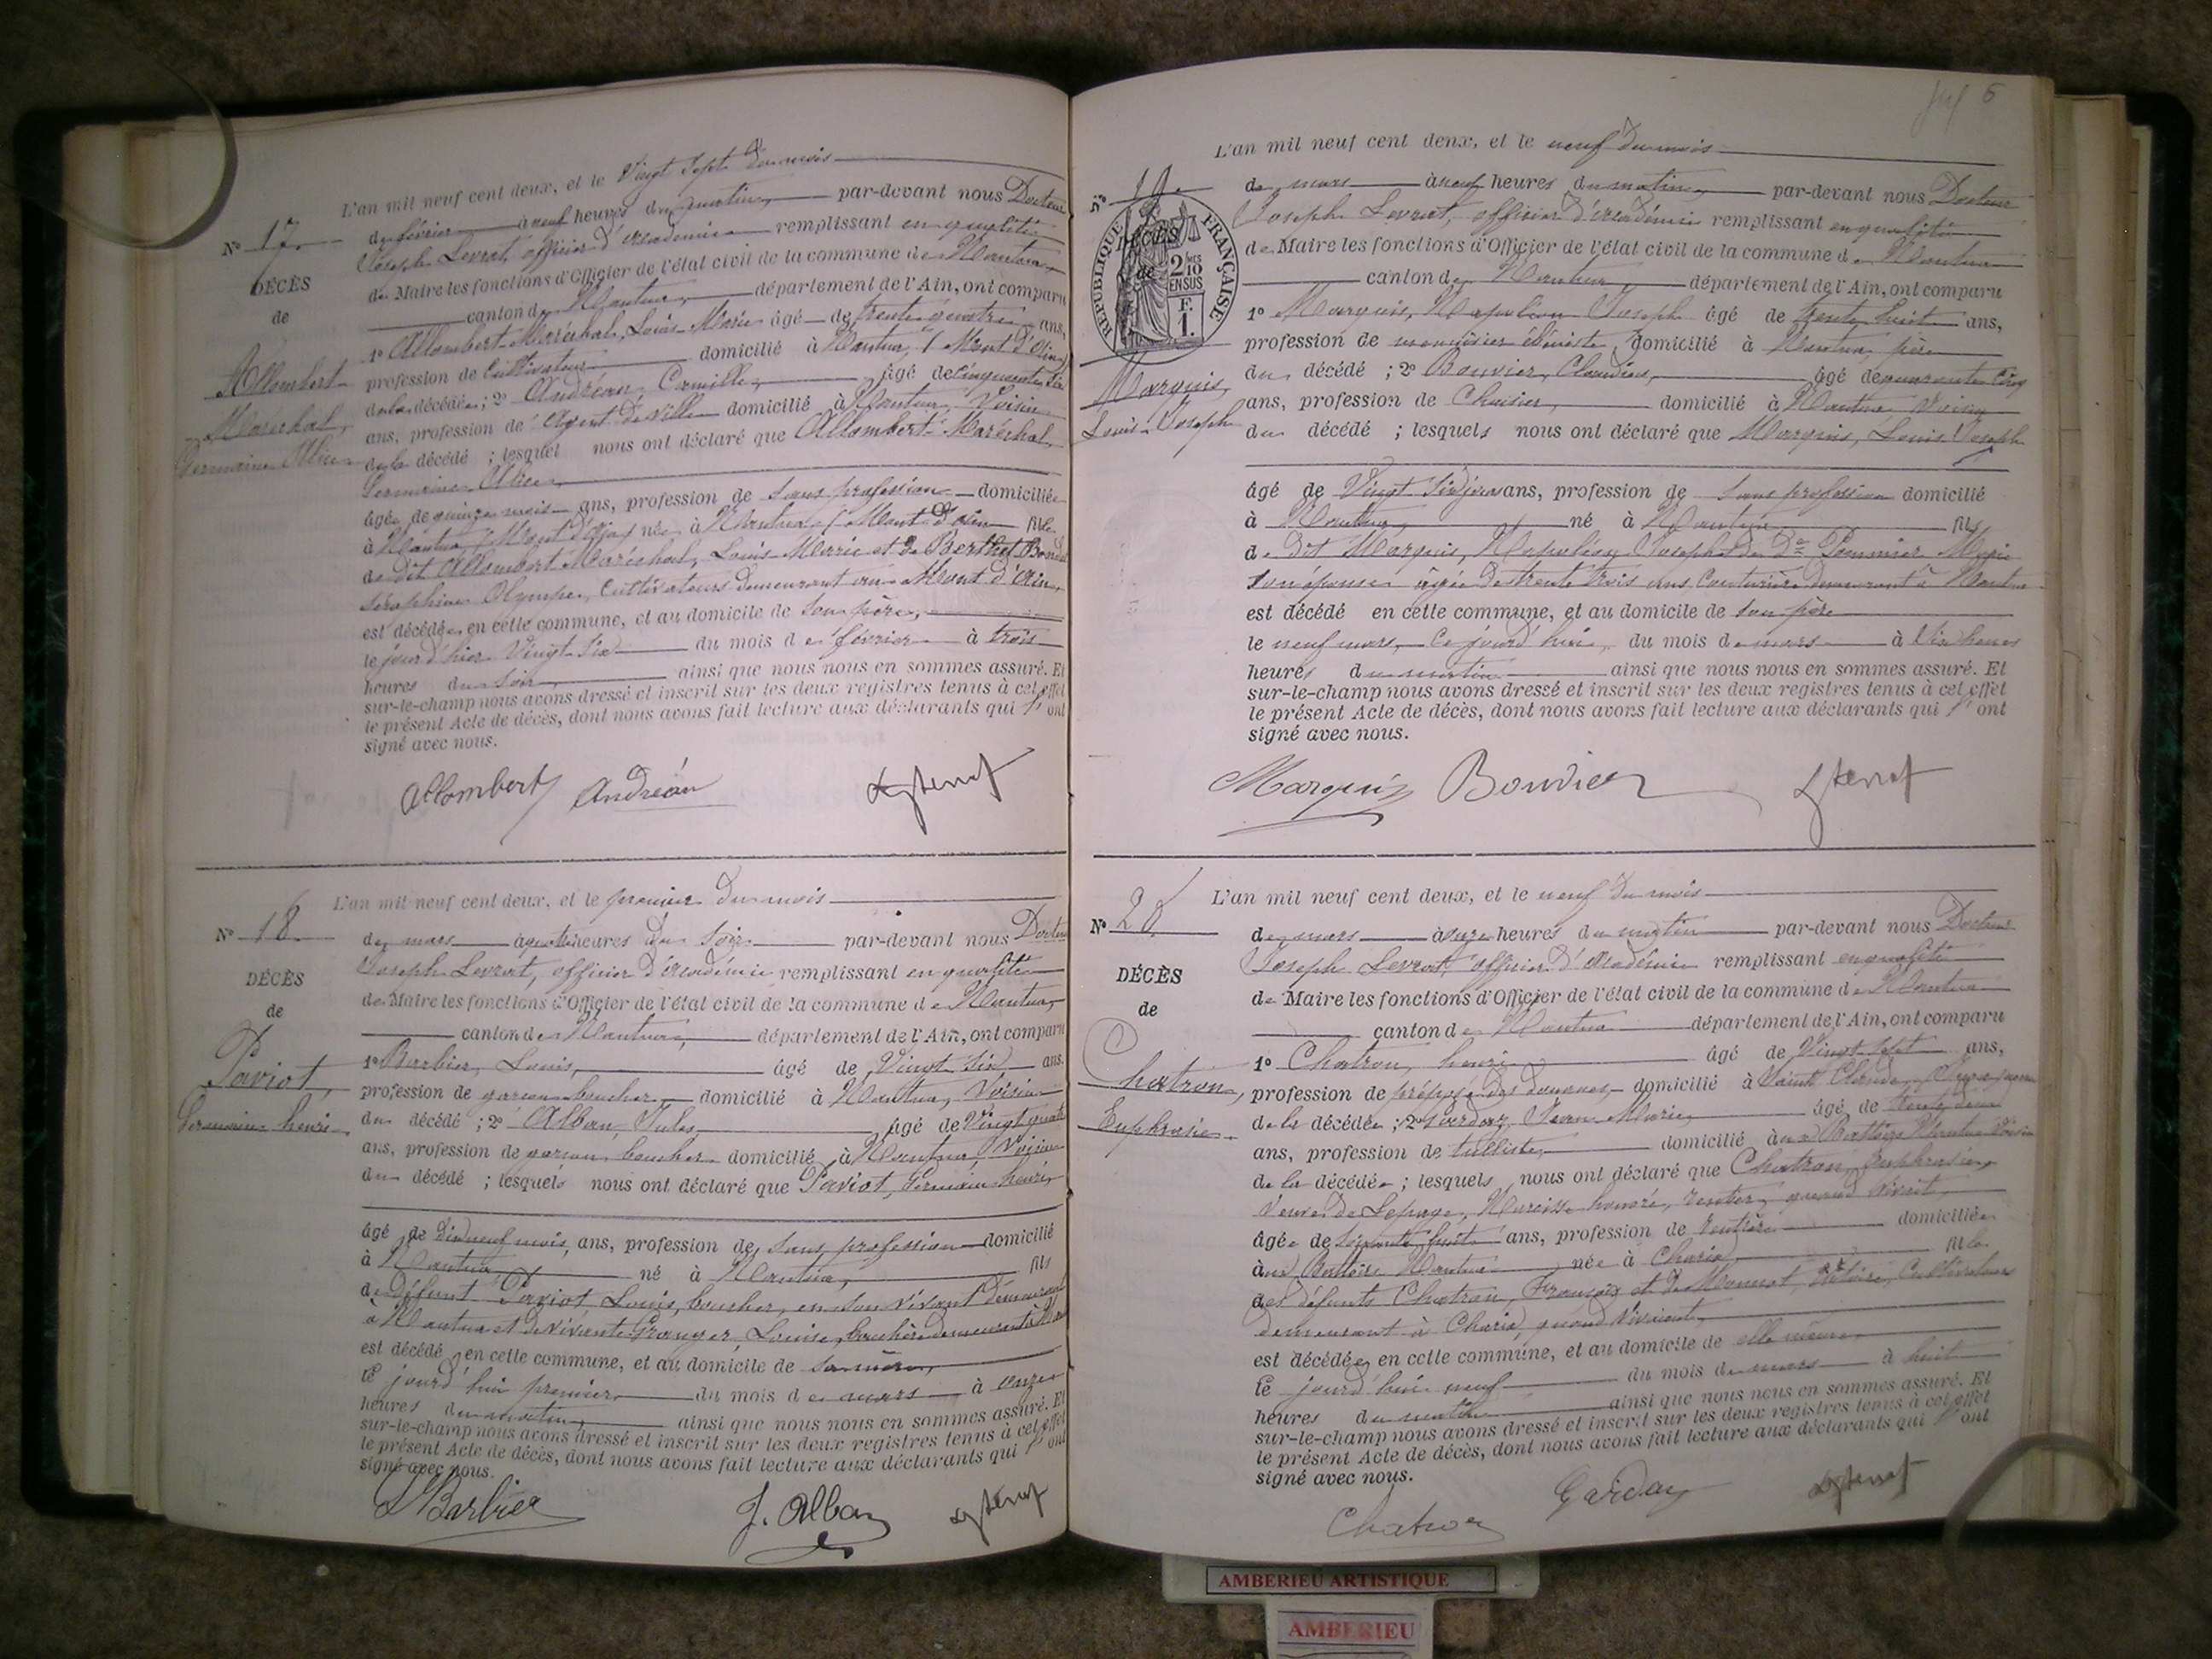 L'an mil neuf cent deux, et le Vingt Sept du mois
N° 17.
de février à neuf heures du matin, par-devant nous Docteur
Joseph Levrat, officier d'académie remplissant en qualité
DÉCÈS
de Maire les fonctions d'Officier de l'état civil de la commune de Nantua
de
canton de Nantua, département de l'Ain, ont comparu
1° Allombert-Maréchal, Louis-Marie âgé de trente quatre ans,
Allombert-
Maréchal,
Germaine Alice
profession de Cultivateur domicilié à Nantua, (Mont d'Ain) père
de la décédée ; 2° Andréan, Camille, âgé de Cinquante six
ans, profession de Agent de Ville domicilié à Nantua, Voisin
de la décédé ; lesquel nous ont déclaré que Allombert-Maréchal,
Germaine Alice,
âgée de quinze mois ans, profession de Sans profession domiciliée
à Nantua, (Mont d'Ain) née à Nantua (Mont d'Ain fille
de dit Allombert Maréchal, Louis-Marie et de Berthet Bondet
Séraphine Olympe, Cultivateurs demeurant au Mont d'Ain,
est décédée en cette commune, et au domicile de Son père,
le jour d'hier Vingt-Six du mois de février à trois
heures du Soir, ainsi que nous nous en sommes assuré. Et
sur-le-champ nous avons dressé et inscrit sur les deux registres tenus à cet effet
le présent Acte de décès, dont nous avons fait lecture aux déclarants qui l'ont
signé avec nous.
Allombert Andréan
L'an mil neuf cent deux, et le premier du mois
N° 18
de mars à quatre heures du Soir par-devant nous Docteur
Joseph Levrat, officier d'académie remplissant en qualité
DÉCÈS
de Maire les fonctions d'Officier de l'état civil de la commune de Nantua,
de
canton de Nantua, département de l'Ain, ont comparu
Paviot,
Germain henri
1° Barbier, Louis, âgé de Vingt six ans.
profession de garçon boucher domicilié à Nantua, Voisin
du décédé ; 2° Alban, Jules, âgé de Vingt quatre
ans, profession de garçon boucher domicilié à Nantua, Voisin
du décédé ; lesquels nous ont déclaré que Paviot, Germain henri,
âgé de Dixneuf mois, ans, profession de Sans profession domicilié
à Nantua né à Nantua, fils
de défunt Paviot Louis, boucher, en son vivant demeurant
à Nantua et de vivante Granger, Louise, bouchère demeurant à
est décédé en cette commune, et au domicile de Sa mère,
le jourd'hui premier, du mois de mars à onze
heures du matin, ainsi que nous nous en sommes assuré. Et
sur-le-champ nous avons dressé et inscrit sur les deux registres tenus à cet effet
le présent Acte de décès, dont nous avons fait lecture aux déclarants qui l'ont
signé avec nous.
Barbier J. Alban
6
L'an mil neuf cent deux, et le neuf du mois
N° 19
de mars à neuf heures du matin, par-devant nous Docteur
Joseph Levrat, officier d'académie remplissant en qualité
RÉPUBLIQUE FRANÇAISE
DÉCÈS
de
2 10 EN SUS
F. 1.
de Maire les fonctions d'Officier de l'état civil de la commune de Nantua
canton de Nantua département de l'Ain, ont comparu
Marquis,
Louis-Joseph
1° Marquis, Napoléon Joseph âgé de trente huit ans,
profession de menuisier ébéniste, domicilié à Nantua, père
du décédé ; 2° Bouvier, Claudius, âgé de quarante Cinq
ans, profession de Chaisier, domicilié à Nantua, Voisin
du décédé ; lesquels nous ont déclaré que Marquis, Louis Joseph
âgé de Vingt six jours ans, profession de Sans profession domicilié
à Nantua, né à Nantua fils
de dit Marquis, Napoléon Joseph et de Dme Pommier Marie
son épouse âgée de trente trois ans, Couturière demeurant à Nantua
est décédé en cette commune, et au domicile de Son père
le neuf mars, Ce jourd'hui, du mois de mars à Six heures
heures du matin ainsi que nous nous en sommes assuré. Et
sur-le-champ nous avons dressé et inscrit sur les deux registres tenus à cet effet
le présent Acte de décès, dont nous avons fait lecture aux déclarants qui l'ont
signé avec nous.
Marquis Bouvier
L'an mil neuf cent deux, et le neuf du mois
N° 20
de mars à onze heures du matin par-devant nous Docteur
Joseph Levrat officier d'académie remplissant en qualité
DÉCÈS
de Maire les fonctions d'Officier de l'état civil de la commune de Nantua
de
canton de Nantua département de l'Ain, ont comparu
Chatron,
Euphrasie
1° Chatron, henri âgé de Vingt sept ans,
profession de préposé des douanes, domicilié à Saint Claude, Jura, neveu
de la décédée ; 2° Gardaz, Jean Marie âgé de trente deux
ans, profession de tulliste, domicilié aux Battoirs Nantua Voisin
de la décédée ; lesquels nous ont déclaré que Chatron, Euphrasie,
Veuve de Lepage, Narcisse honoré, rentier, quand Vivait,
âgée de Soixante huit ans, profession de rentière domiciliée
aux Battoirs Nantua née à Charix fille
des défunts Chatron, François et de Monnet, Victoire, Cultivateurs
demeurant à Charix, quand Vivaient,
est décédée en cette commune, et au domicile de elle même
le jourd'hui neuf du mois de mars à huit
heures du matin ainsi que nous nous en sommes assuré. Et
sur-le-champ nous avons dressé et inscrit sur les deux registres tenus à cet effet
le présent Acte de décès, dont nous avons fait lecture aux déclarants qui l'ont
signé avec nous.
Chatron Gardaz
AMBERIEU ARTISTIQUE
AMBERIEU